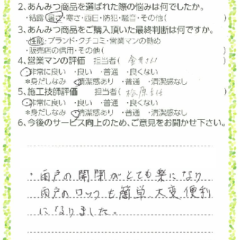 2.あんみつ商品を選ばれた際の悩みは何でしたか。
・結露・寒さ・西日・防犯・騒音・その他(　　)
3.あんみつ商品をご購入頂いた最終判断は何ですか。
・性能・ブランド・クチコミ・営業マンの勧め
・販売店の信用・その他(　　)
4.営業マンの評価　担当者名(
・非常に良い　・良い　・普通　・良くない
*身だしなみ　・清潔感あり　・普通　・清潔感なし
5.施工技師評価　担当者名(
・非常に良い　・良い　・普通　・良くない
*身だしなみ　・清潔感あり　・普通　・清潔感なし
6.今後のサービス向上のため、ご意見をお聞かせ下さい。
・雨戸の開閉がとても楽になり
雨戸のロックも簡単、大変便利
になりました。